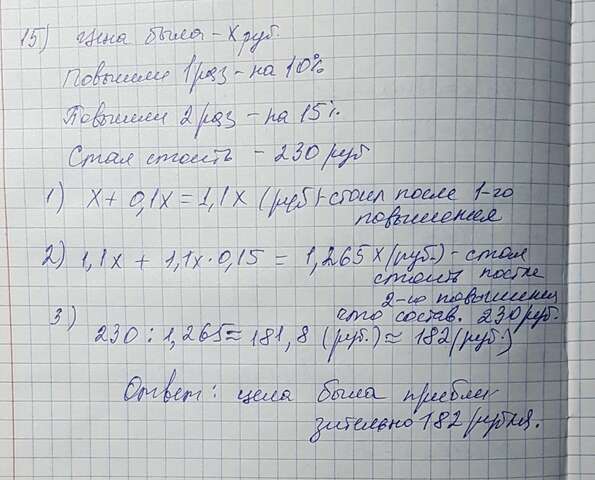 15) Цена была - х руб.
Повысили 1 раз - на 10%
Повысили 2 раз - на 15%
Стал стоить - 230 руб
1) х + 0,1х = 1,1х (руб) - стоил после 1-го
повышения
2) 1,1х + 1,1х · 0,15 = 1,265х (руб.) - стал
стоить после
2-го повышения
что состав. 230 руб.
3) 230 : 1,265 ≈ 181,8 (руб.) ≈ 182 (руб.)
Ответ: цена была прибли
зительно 182 рубля.